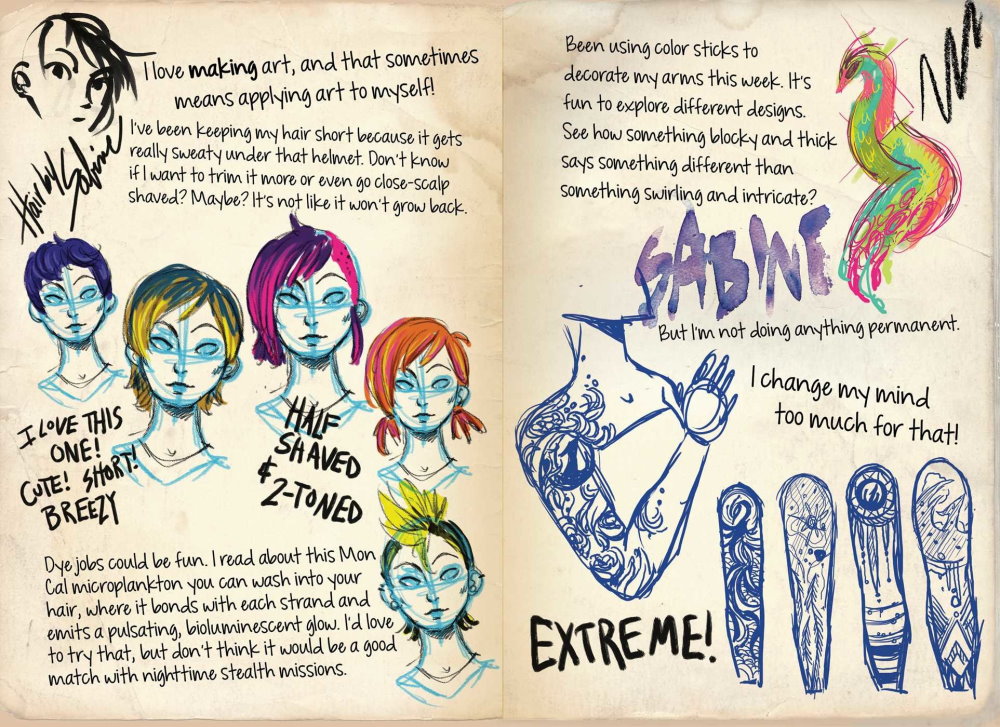 I love making art, and that sometimes
means applying art to myself!
Hair by Sabine
I've been keeping my hair short because it gets
really sweaty under that helmet. Don't know
if I want to trim it more or even go close-scalp
shaved? Maybe? It's not like it won't grow back.
I LOVE THIS
ONE!
CUTE! SHORT!
BREEZY
HALF
SHAVED
& 2-TONED
Dye jobs could be fun. I read about this Mon
Cal microplankton you can wash into your
hair, where it bonds with each strand and
emits a pulsating, bioluminescent glow. I'd love
to try that, but don't think it would be a good
match with nighttime stealth missions.
Been using color sticks to
decorate my arms this week. It's
fun to explore different designs.
See how something blocky and thick
says something different than
something swirling and intricate?
SABINE
But I'm not doing anything permanent.
I change my mind
too much for that!
EXTREME!